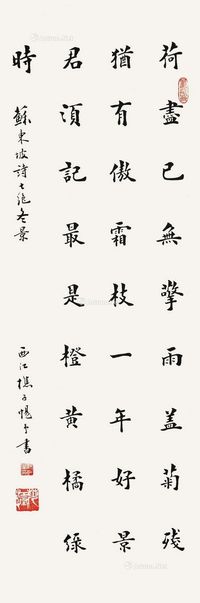 荷盡已無擎雨盖菊残
猶有傲霜枝一年好景
君須記最是橙黄橘緑
時
蘇東坡詩七絕冬景
西江樵子書